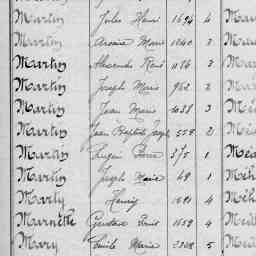 Martin Jules Henri 1694 4 Mau
Martin Marie 1240 2 Mau
Martin Alexandre René 1186 2 Mau
Martin Joseph Marie 962 2 Mau
Martin Jean Marie 1038 3 Mé
Martin Jean Baptiste 558 2 Mé
Martin Eugène Pierre 375 1 Méa
Martin Joseph Marie 49 1 Méh
Marty Henri 1691 4 Méh
Marnette Gustave Louis 1659 4
Mary Emile Marie 2308 5